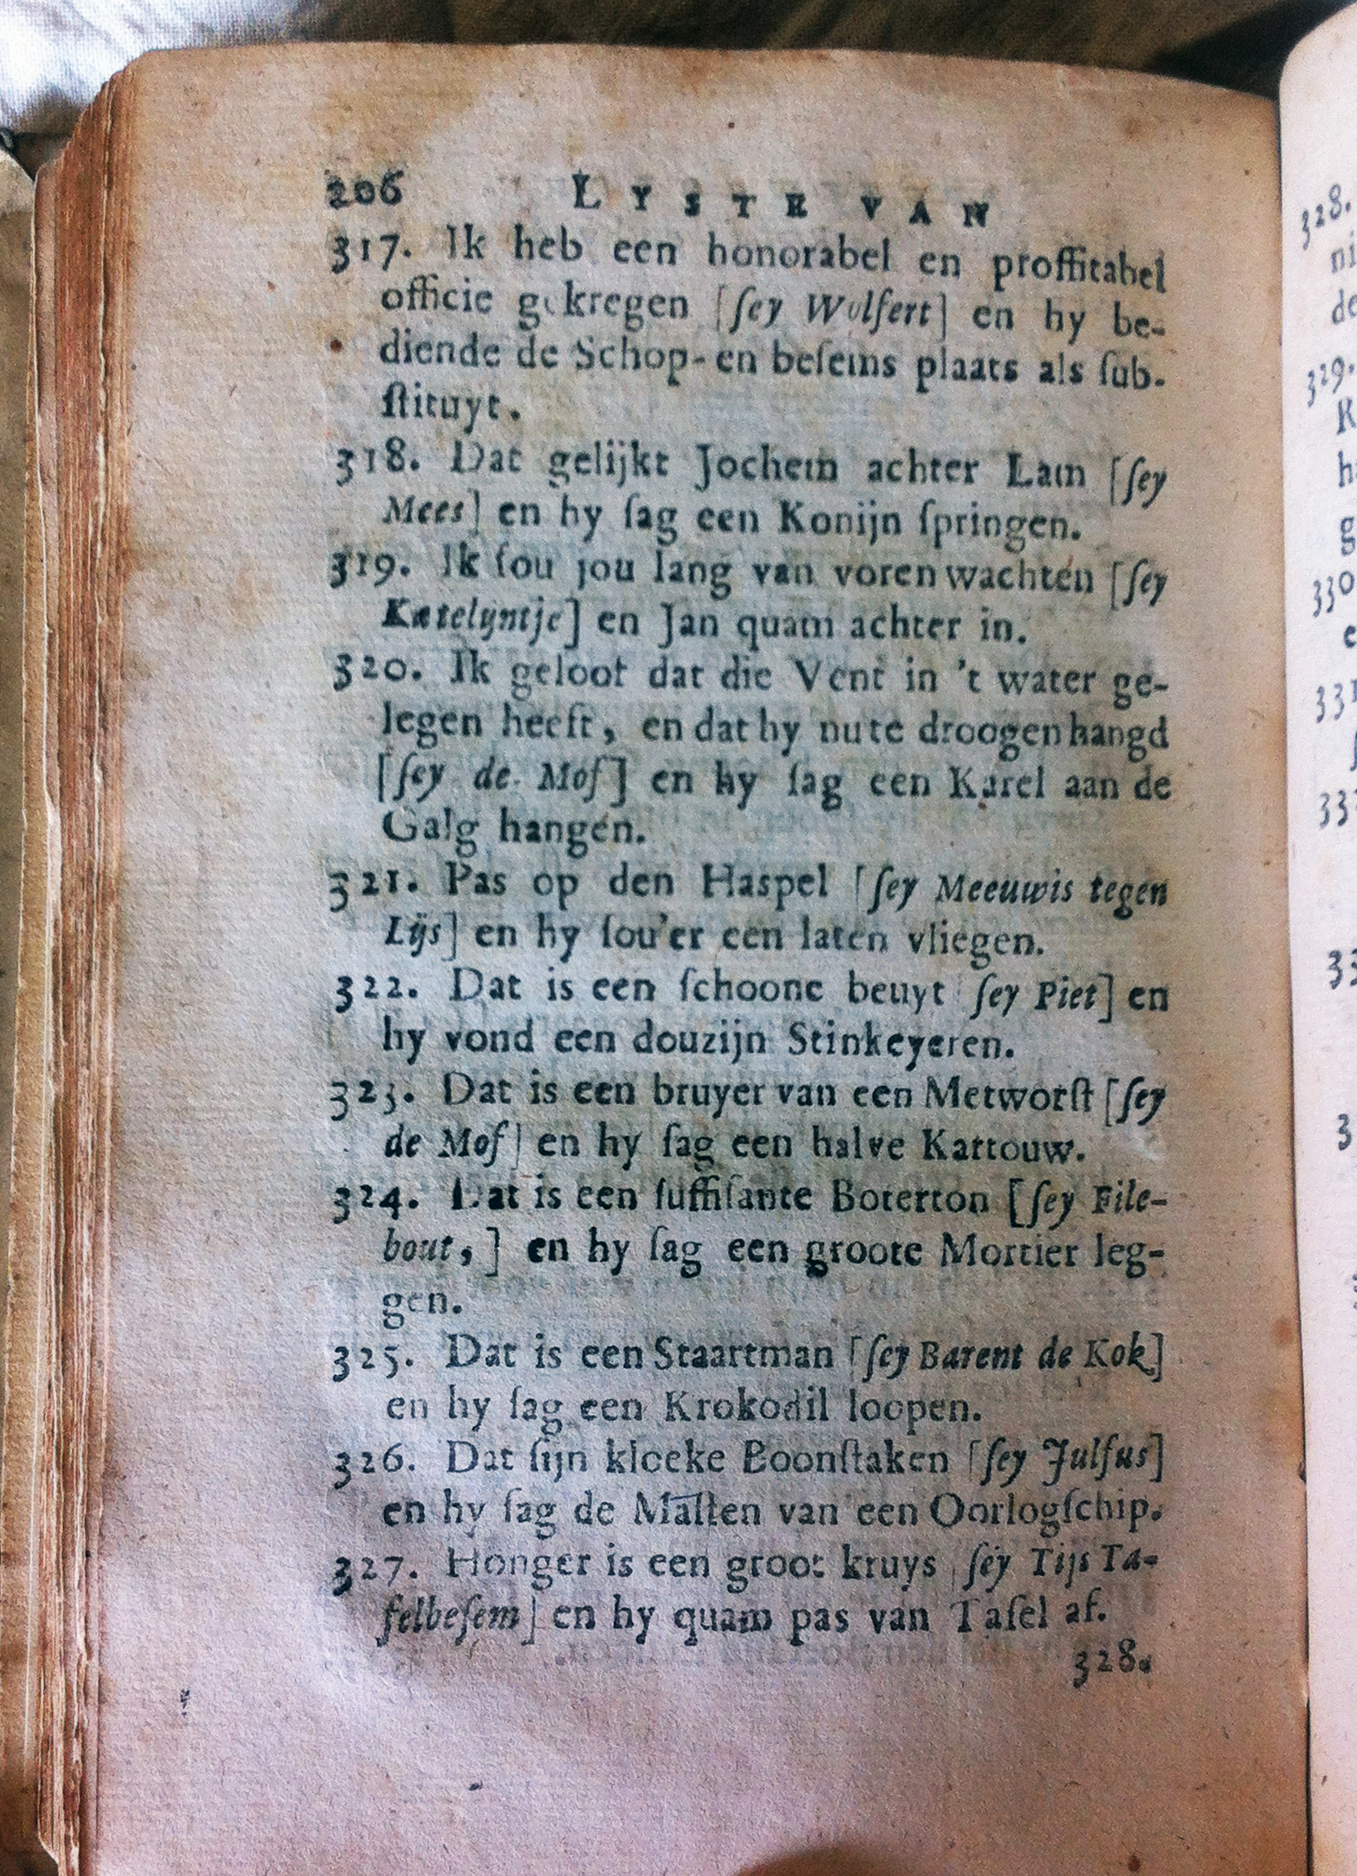 206 LYSTE VAN
317. Ik heb een honorabel en proffitabel
officie gekregen [ſey Wolfert] en hy be-
diende de Schop- en beſems plaats als ſub-
ſtituyt.
318. Dat gelijkt Jochem achter Lam [ſey
Mees] en hy ſag een Konijn ſpringen.
319. Ik ſou jou lang van voren wachten [ſey
Katelyntje] en Jan quam achter in.
320. Ik geloof dat die Vent in 't water ge-
legen heeft, en dat hy nu te droogen hangd
[ſey de Mof] en hy ſag een Karel aan de
Galg hangen.
321. Pas op den Haspel [ſey Meeuwis tegen
Lijs] en hy ſou'er een laten vliegen.
322. Dat is een ſchoone beuyt ſey Piet] en
hy vond een douzijn Stinkeyeren.
323. Dat is een bruyer van een Metworſt [ſey
de Mof] en hy ſag een halve Kartouw.
324. Dat is een ſuffiſante Boterton [ſey File-
bout,] en hy ſag een groote Mortier leg-
gen.
325. Dat is een Staartman [ſey Barent de Kok]
en hy ſag een Krokodil loopen.
326. Dat ſijn kloeke Boonſtaken [ſey Julfus]
en hy ſag de Maſten van een Oorlogſchip.
327. Honger is een groot kruys [ſey Tijs Ta-
felbeſem] en hy quam pas van Tafel af.
328.
328.
ni
de
329.
K
ha
g
330
e
331
ſ
33
33
3